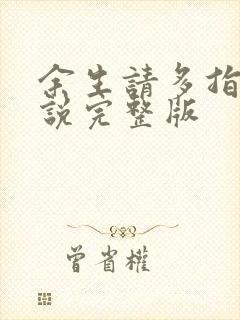 余生請多指
說完整版
曾省權